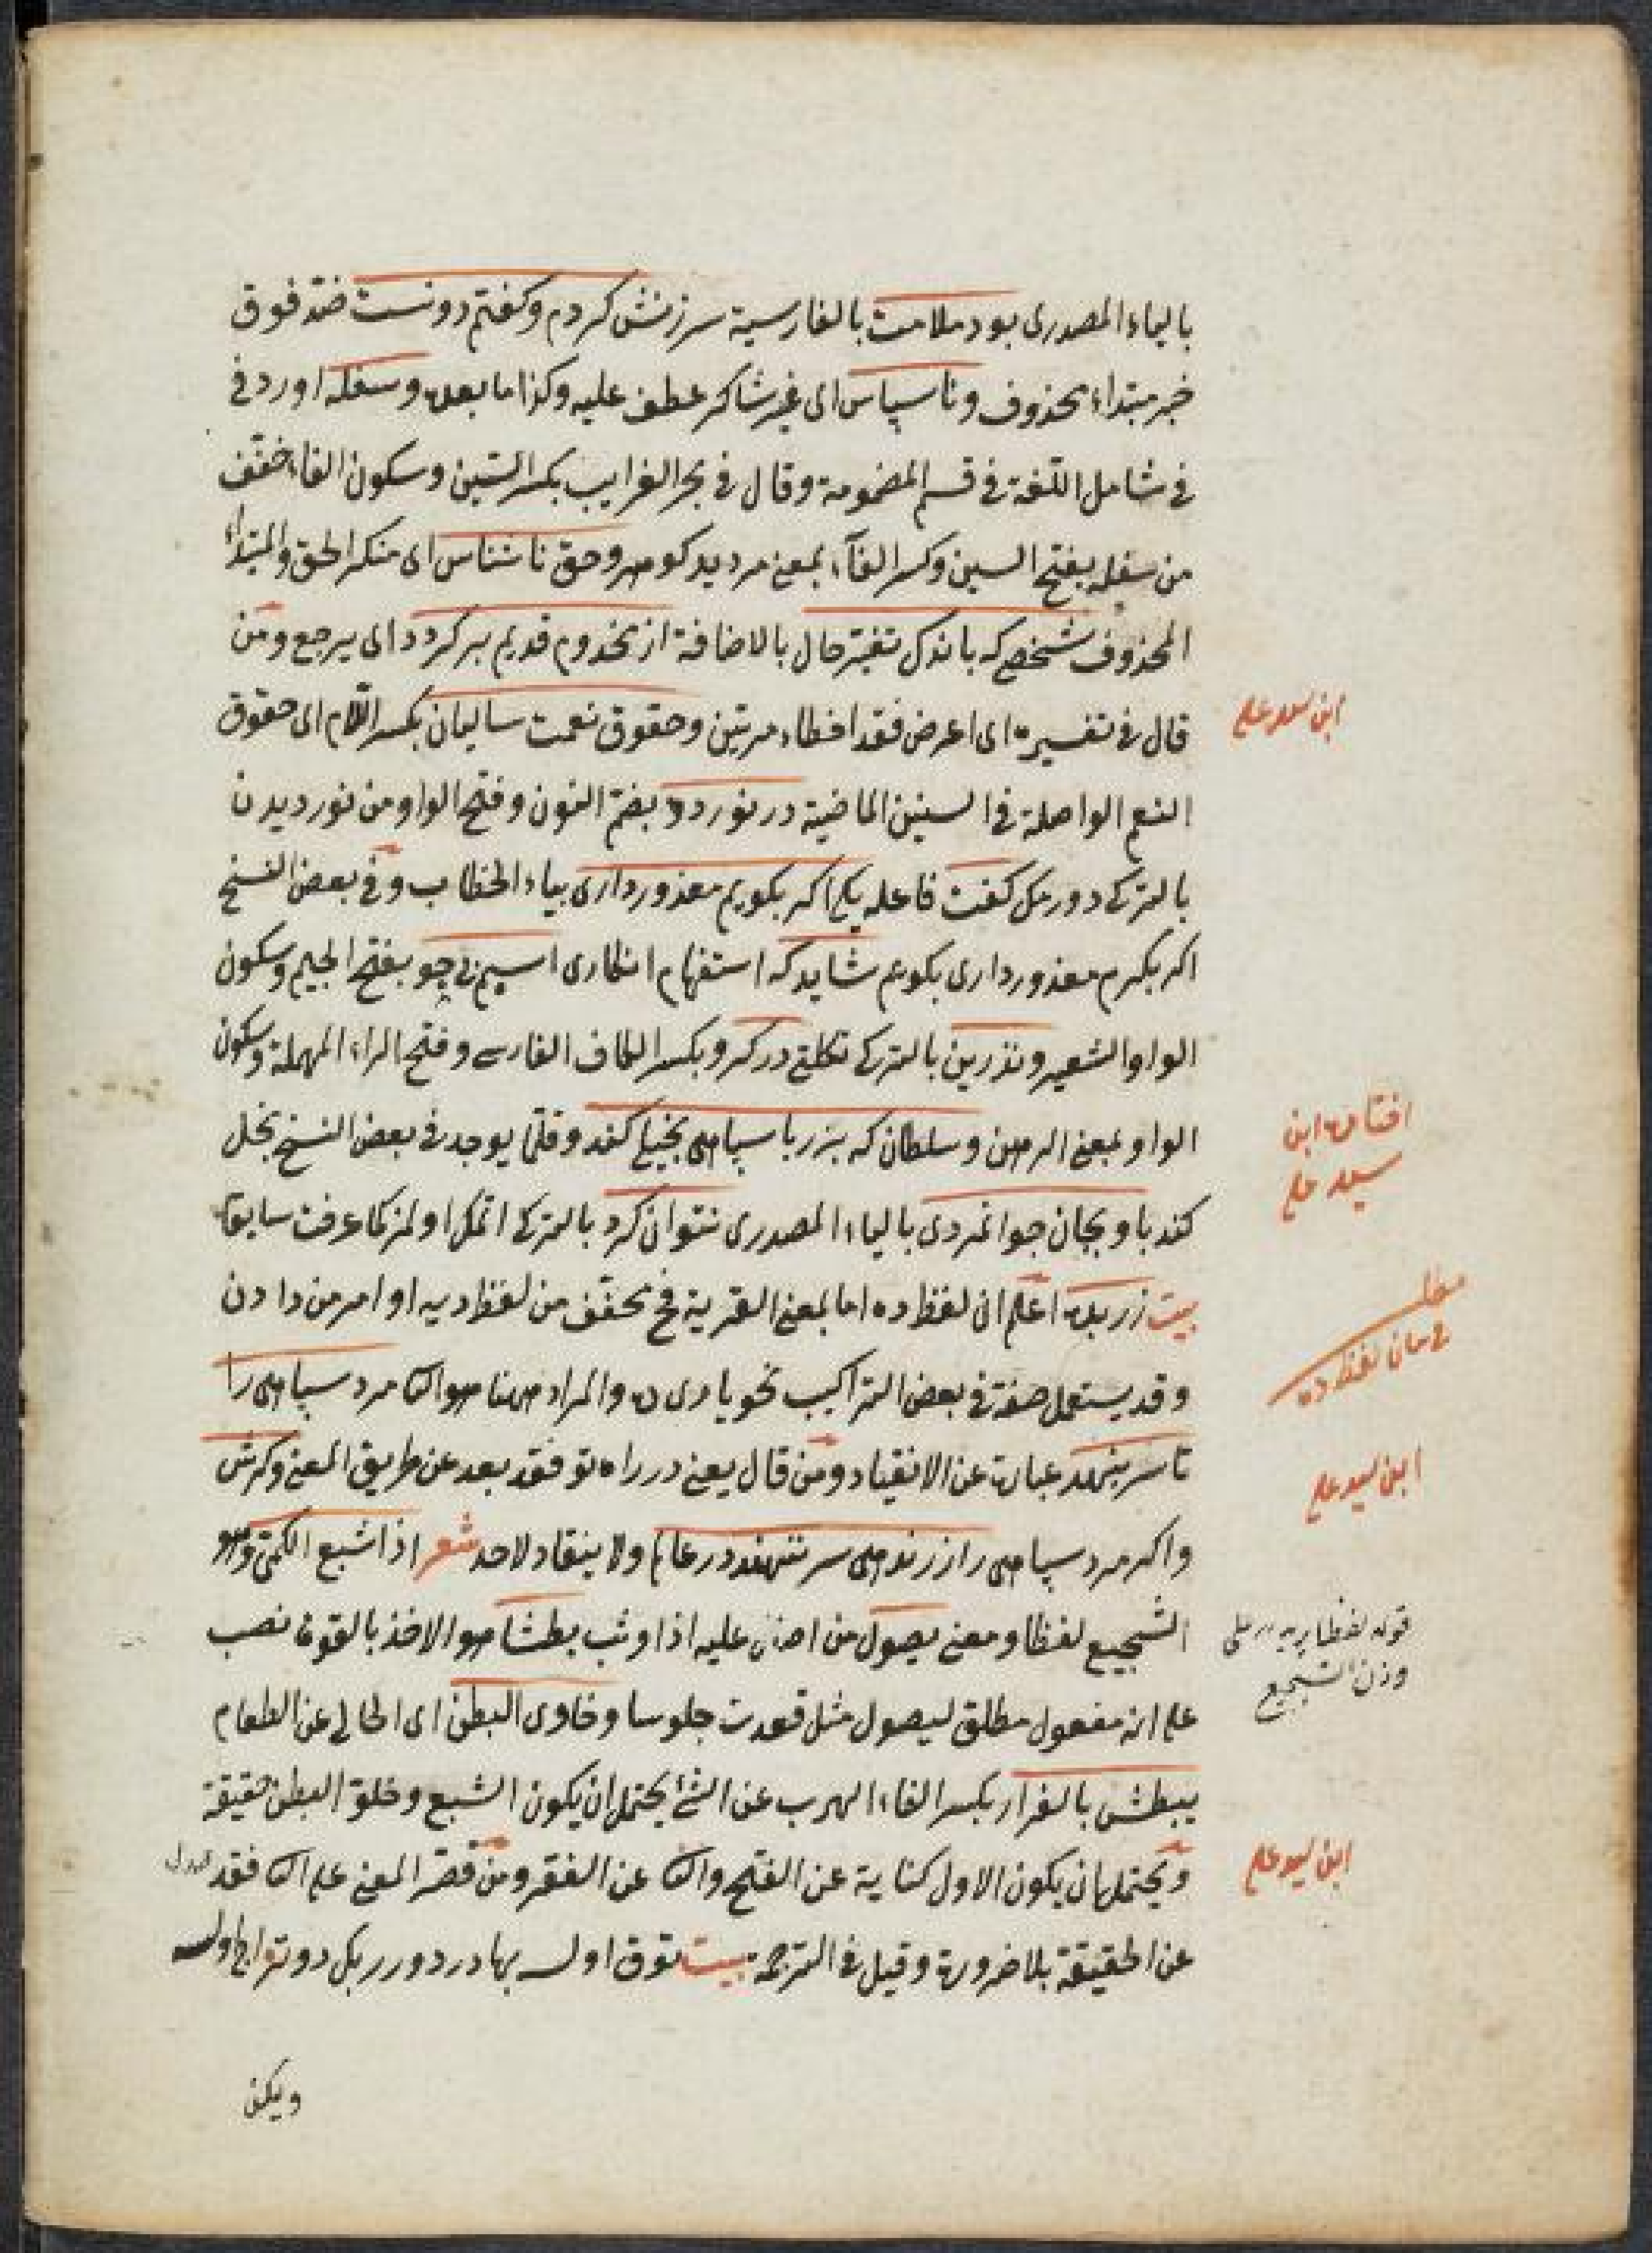 بالياء المصدرى بود ملامت بالفارسية سرزنش كردم وكفتم دونست ضد فوق
خبر مبتداء محذوف وناسپاس اى غير شاكر عطف عليه وكذا ما بعده وسفله اورد فى
فى شامل اللغة فى قسم المضمومة وقال فى بحر الغرايب بكسر السين وسكون الفاء مخفف
من سفله بفتح السين وكسر الفآء بمعنى مرد بدكوهر وحق ناشناس اى منكر الحق والمبتداء
المحذوف شخصى كه باندك تغير حال بالاضافة از مخدوم قديم بر كردد اى يرجع ومن
قال فى تفسيره اى اعرض فقد اخطاء مرتين وحقوق نعمت ساليان بكسر اللام اى حقوق
النعم الواصلة فى السنين الماضية در نوردد بضم النون وفتح الواو من نورديدن
بالتركى دورمك كفت فاعله يكى اكر بكويم معذور دارى بياء الخطاب وفى بعض النسخ
اكر بكرم معذور دارى بكويم شايد كه استفهام انكارى اسپم بى جو بفتح الجيم وسكون
الواو الشعير ونذرين بالتركى تكلتى در كرو بكسر الكاف الفارسى وفتح الراء المهملة وسكون
الواو بمعنى الرهن وسلطان كه بزر با سپاهى بخيلى كند وقلما يوجد فى بعض النسخ بخل
كند با او بجان جوانمردى بالياء المصدرى نتوان كرد بالتركى اتمك اولمز كما عرفت سابقا
بيت زر بده اعلم ان لفظ ده اما بمعنى القرية فح مخفف من لفظ ديه او امر من دادن
وقد يستعمل صفة فى بعض التراكيب نحو يارى ده والمراد ههنا هو الثا مرد سپاهى را
تا سر بنهد عبارت عن الانقياد ومن قال يعنى در راه تو فقد بعد عن طريق المعنى وكرش
واكر مرد سپاهى را زر ندهى سر بنهد در عالم ولا ينقاد لاحد شعر اذا شبع الكمى وهو
الشجيع لفظا ومعنى يصول من صال عليه اذا وثب بطشا هو الاخذ بالقوة نصب
على انه مفعول مطلق ليصول مثل قعدت جلوسا وخاوى البطن اى الخالى عن الطعام
يبطش بالفرار بكسر الفاء الهرب عن الشئ يحتمل ان يكون الشبع وخلو البطن حقيقة
ويحتمل ان يكون الاول كناية عن الفتح والثا عن الفقر ومن قصر المعنى على الثا فقد عدل
عن الحقيقة بلا ضرورة وقيل فى الترجمه بيت توق اولسه بهادر دورر بكل دو
ويمكن
ابن سيد على
افتاده ابن
سيد على
مطلب
فى بيان لفظ ده
ابن سيد على
قوله لفظا على
وزن الشجيع
ابن سيد على